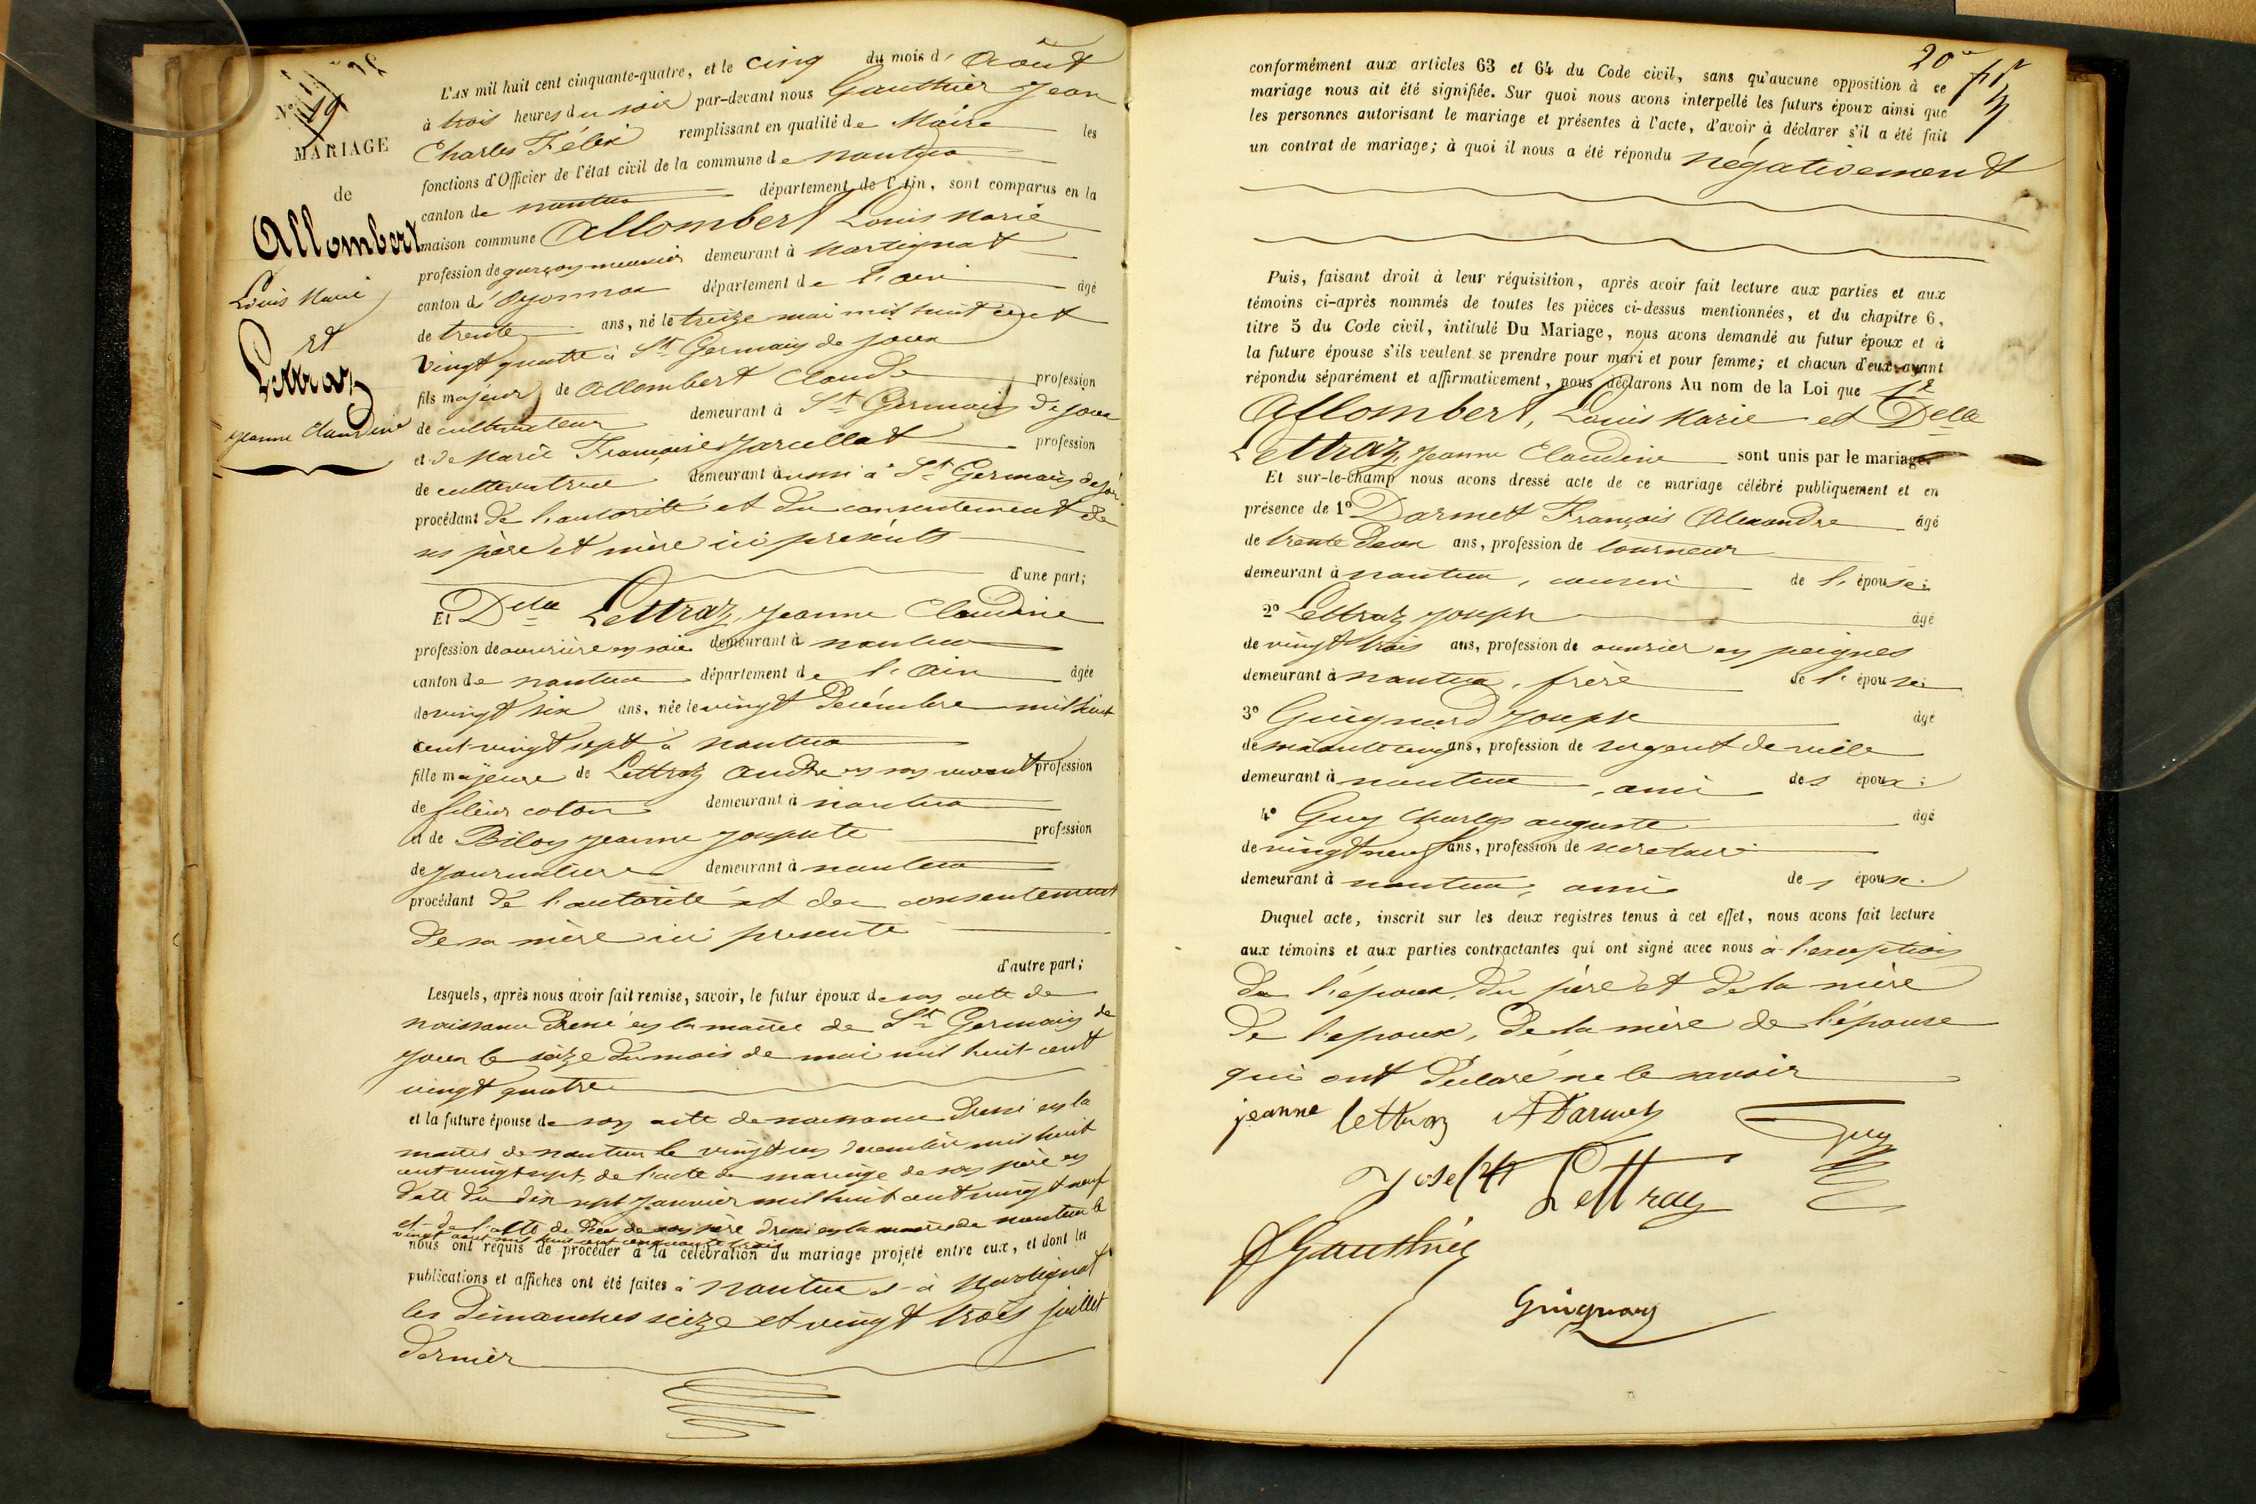 N° 19
MARIAGE
de
Allombert
Louis Marie
et
Lettraz
Jeanne Claudine
L'AN mil huit cent cinquante-quatre, et le cinq du mois d'Août
à trois heures du soir par-devant nous Gauthier Jean
Charles Félix remplissant en qualité de Maire les
fonctions d'Officier de l'état civil de la commune de nantua
canton de nantua département de l'Ain, sont comparus en la
maison commune Allombert Louis Marie
profession de garçon meunier demeurant à Martignat
canton d'Oyonnax département de l'ain âgé
de trente ans, né le treize mai mil huit cent
vingt quatre à St Germain de joux
fils majeur de Allombert Claude profession
de cultivateur demeurant à St Germain de joux
et de Marie Françoise Jarcellat profession
de cultivatrice demeurant aussi à St Germain de joux
procédant de l'autorité et du consentement de
ses père et mère ici présents
d'une part;
Et Delle Lettraz, Jeanne Claudine
profession de ouvrière en soie demeurant à nantua
canton de nantua département de l'Ain âgée
de vingt six ans, née le vingt Décembre mil huit
cent vingt sept à nantua
fille majeure de Lettraz André en son vivant profession
de fileur coton demeurant à nantua
et de Biloy Jeanne Josephte profession
de journalière demeurant à nantua
procédant de l'autorité et du consentement
de sa mère ici présente
d'autre part;
Lesquels, après nous avoir fait remise, savoir, le futur époux de son acte de
naissance dressé en la mairie de St Germain de
joux le seize du mois de mai mil huit cent
vingt quatre
et la future épouse de son acte de naissance dressé en la
mairie de nantua le vingt un décembre mil huit
cent vingt sept, de l'acte de mariage de son père en
date du dix sept Janvier mil huit cent vingt neuf
et de l'acte de décès de son père dressé en la mairie de nantua le
vingt aout mil huit cent cinquante trois
nous ont requis de procéder à la célébration du mariage projeté entre eux, et dont les
publications et affiches ont été faites à nantua et à Martignat
les Dimanches seize et vingt trois juillet
dernier
20e
conformément aux articles 63 et 64 du Code civil, sans qu'aucune opposition à ce
mariage nous ait été signifiée. Sur quoi nous avons interpellé les futurs époux ainsi que
les personnes autorisant le mariage et présentes à l'acte, d'avoir à déclarer s'il a été fait
un contrat de mariage; à quoi il nous a été répondu négativement
Puis, faisant droit à leur réquisition, après avoir fait lecture aux parties et aux
témoins ci-après nommés de toutes les pièces ci-dessus mentionnées, et du chapitre 6,
titre 5 du Code civil, intitulé Du Mariage, nous avons demandé au futur époux et à
la future épouse s'ils veulent se prendre pour mari et pour femme; et chacun d'eux ayant
répondu séparément et affirmativement, nous déclarons Au nom de la Loi que
Allombert, Louis Marie et Delle
Lettraz, Jeanne Claudine sont unis par le mariage.
Et sur-le-champ nous avons dressé acte de ce mariage célébré publiquement et en
présence de 1° Darmet François Alexandre âgé
de trente deux ans, profession de tourneur
demeurant à nantua, cousin de l'épouse;
2° Lettraz Joseph âgé
de vingt trois ans, profession de ouvrier en peignes
demeurant à nantua, frère de l'épouse;
3° Guignard Joseph âgé
de ans, profession de sergent de ville
demeurant à nantua, ami des époux;
4° Guy Charles auguste âgé
de vingt neuf ans, profession de secretaire
demeurant à nantua, ami des époux.
Duquel acte, inscrit sur les deux registres tenus à cet effet, nous avons fait lecture
aux témoins et aux parties contractantes qui ont signé avec nous à l'exception
de l'époux, du père et de la mère
de l'époux, de la mère de l'épouse
qui ont déclaré ne le savoir
jeanne lettraz ADarmet
Guy
Joseph Lettraz
Gauthier
Guignard